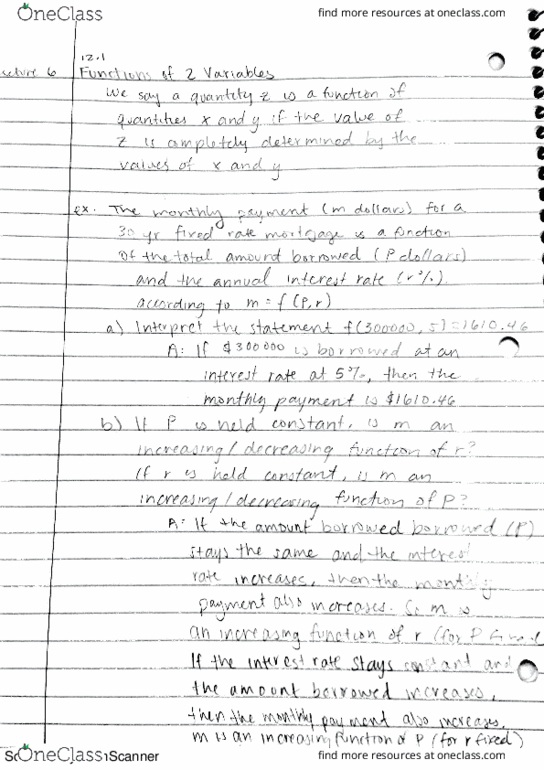 OneClass find more resources at oneclass.com
12.1
Lecture 6 Functions of 2 Variables
We say a quantity z is a function of
quantities x and y if the value of
z is completely determined by the
values of x and y
ex. The monthly payment (m dollars) for a
30 yr fixed rate mortgage is a function
of the total amount borrowed (P dollars)
and the annual interest rate (r%).
according to m = f(P,r)
a) Interpret the statement f(300000, 5) = 1610.46
A: If $300000 is borrowed at an
interest rate at 5%, then the
monthly payment is $1610.46
b) If P is held constant, is m an
increasing/decreasing function of r?
If r is held constant, is m an
increasing/decreasing function of P?
A: If the amount borrowed borrowed (P)
stays the same and the interest
rate increases, then the monthly
payment also increases. So m is
an increasing function of r (for P fixed
If the interest rate stays constant and
the amount borrowed increases,
then the monthly payment also increases.
m is an increasing function of P (for r fixed)
OneClass Scanner find more resources at oneclass.com